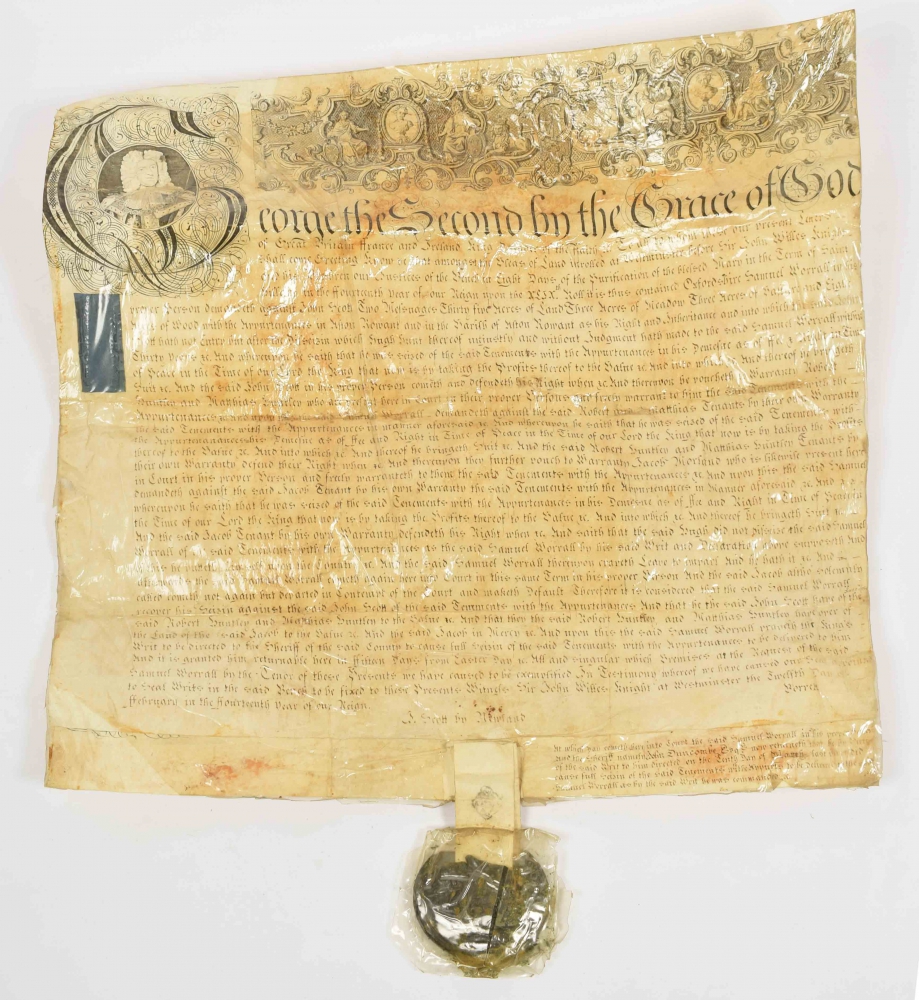 George the Second by the Grace of God
of Great Britain ffrance and Ireland King
shall come Greeting Know that amongst the Pleas of Land inrolled at Westminster before Sir John Willes Knight
our Justices of the Bench in Eight Days of the Purification of the blessed Mary in the Term of Saint
in the ffourteenth Year of our Reign upon the XLIX. Roll it is thus contained Oxfordshire Samuel Worrall in his
proper Person demandeth against John Scott Two Messuages Thirty five Acres of Land Three Acres of Meadow Three Acres of Pasture and Eight
of Wood with the Appurtenances in Aston Rowant and in the Parish of Aston Rowant as his Right and Inheritance and into which
hath not Entry but after the Disseizin which Hugh Hunt thereof injustly and without Judgment hath made to the said Samuel Worrall within
Thirty Years &c. And whereupon he saith that he was seized of the said Tenements with the Appurtenances in his Demesne as of ffee in Time
of Peace in the Time of our Lord the King that now is by taking the Profits thereof to the Value &c And into which &c And thereof he bringeth
Suit &c And the said John Scott in his proper Person cometh and defendeth his Right when &c And thereupon he voucheth to Warranty Robert
Huntley and Matthias Huntley who are present here in their proper Persons and freely warrant to him the said
Appurtenances &c And upon this the said Samuel Worrall demandeth against the said Robert and Matthias Tenants by their own Warranty
the said Tenements with the Appurtenances in manner aforesaid &c And whereupon he saith that he was seized of the said Tenements with
the Appurtenances in his Demesne as of ffee and Right in Time of Peace in the Time of our Lord the King that now is by taking the Profits
thereof to the Value &c. And into which &c And thereof he bringeth Suit &c And the said Robert Huntley and Matthias Huntley Tenants by
their own Warranty defend their Right when &c And thereupon they further vouch to Warranty Jacob Morland who is likewise present here
in Court in his proper Person and freely warranteth to them the said Tenements with the Appurtenances &c And upon this the said Samuel
demandeth against the said Jacob Tenant by his own Warranty the said Tenements with the Appurtenances in Manner aforesaid &c And
whereupon he saith that he was seized of the said Tenements with the Appurtenances in his Demesne as of ffee and Right in Time of Peace in
the Time of our Lord the King that now is by taking the Profits thereof to the Value &c. And into which &c And thereof he bringeth Suit &c
And the said Jacob Tenant by his own Warranty defendeth his Right when &c And saith that the said Hugh did not disseize the said Samuel
Worrall of the said Tenements with the Appurtenances as the said Samuel Worrall by his said Writ and Declaration above supposeth And
of this he putteth himself upon the Country &c And the said Samuel Worrall thereupon craveth Leave to imparl And he hath it &c And
afterwards the said Samuel Worrall cometh again here into Court in this same Term in his proper Person And the said Jacob altho solemnly
called cometh not again but departed in Contempt of the Court and maketh Default Therefore it is considered that the said Samuel Worrall
recover his Seizin against the said John Scott of the said Tenements with the Appurtenances And that he the said John Scott have of the
said Robert Huntley and Matthias Huntley to the Value &c And that they the said Robert Huntley and Matthias Huntley have over of
the Land of the said Jacob to the Value &c And the said Jacob in Mercy &c And upon this the said Samuel Worrall prayeth the King's
Writ to be directed to the Sheriff of the said County to cause full Seisin of the said Tenements with the Appurtenances to be delivered to him
And it is granted him returnable here in fifteen Days from Easter Day &c All and singular which Premises at the Request of the said
Samuel Worrall by the Tenor of these Presents we have caused to be exemplified In Testimony whereof we have caused our Seal
to Seal Writs in the said Bench to be fixed to these Presents Witness Sir John Willes Knight at Westminster the Twelfth Day of
ffebruary in the ffourteenth Year of our Reign.
J. Scott by Morland
At which Day cometh here into Court the said Samuel Worrall in his proper
And the Sheriff namely John Duncombe Esqr. now returneth that
of the said Writ to him directed on the Tenth Day of
cause full Seisin of the said Tenements with the Appurts to be delivered
Samuel Worrall as by the said Writ he was commanded